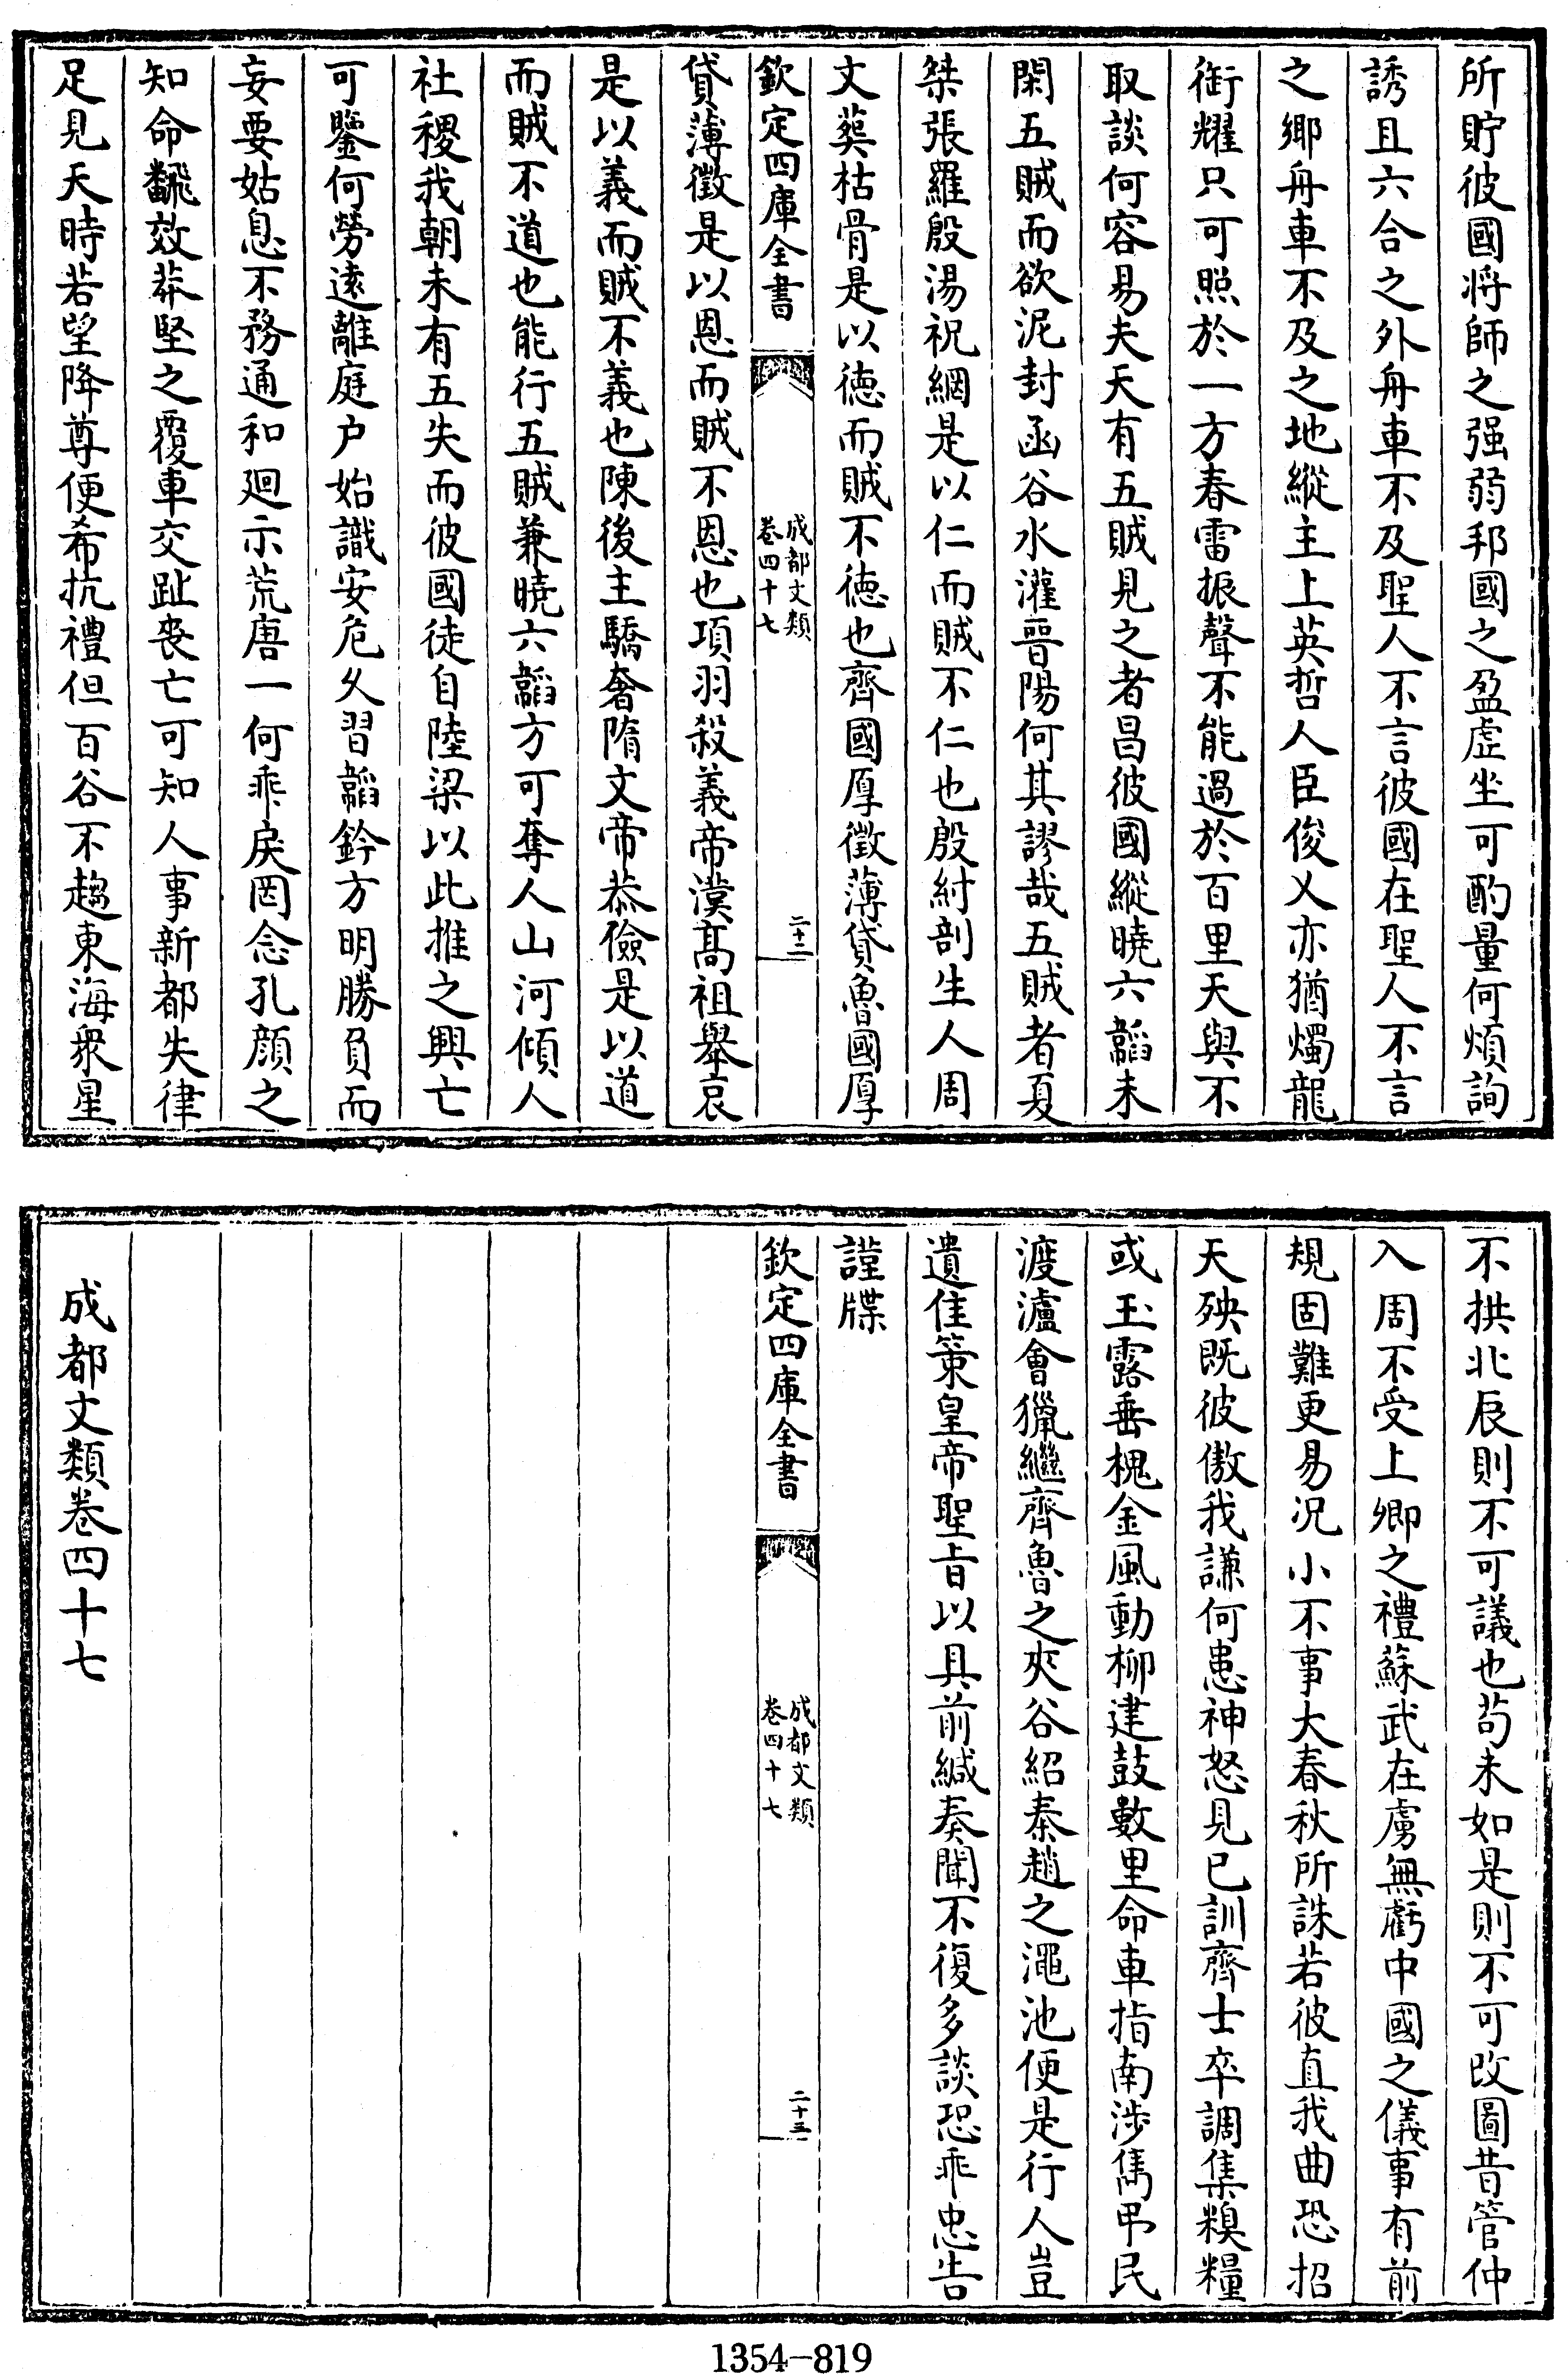 所貯彼國將師之强弱邦國之盈虚坐可酌量何煩詢
誘且六合之外舟車不及聖人不言彼國在聖人不言
之鄉舟車不及之地縱主上英哲人臣俊乂亦猶燭龍
衒耀只可照於一方春雷振聲不能過於百里天與不
取談何容易夫天有五賊見之者昌彼國縱曉六韜未
閑五賊而欲泥封函谷水灌晉陽何其謬哉五賊者夏
桀張羅殷湯祝網是以仁而賊不仁也殷紂剖生人周
文葬枯骨是以德而賊不德也齊國厚徵薄貸魯國厚
欽定四庫全書
成都文類
卷四十七
二十二
貸薄徵是以恩而賊不恩也項羽殺義帝漢高祖舉哀
是以義而賊不義也陳後主驕奢隋文帝恭儉是以道
而賊不道也能行五賊兼曉六韜方可奪人山河傾人
社稷我朝未有五失而彼國徒自陸梁以此推之興亡
可鑒何勞遠離庭户始識安危久習韜鈐方明勝負而
妄要姑息不務通和廻示荒唐一何乖戾罔念孔顔之
知命飜效莽堅之覆車交趾喪亡可知人事新都失律
足見天時若望降尊便希抗禮但百谷不趨東海衆星
不拱北辰則不可議也苟未如是則不可改圖昔管仲
入周不受上卿之禮蘇武在虜無虧中國之儀事有前
規固難更易况小不事大春秋所誅若彼直我曲恐招
天殃既彼傲我謙何患神怒見已訓齊士卒調集糗糧
或玉露垂槐金風動柳建鼓數里命車指南涉雋弔民
渡瀘會獵繼齊魯之夾谷紹秦趙之澠池便是行人豈
遺佳策皇帝聖旨以具前緘奏聞不復多談恐乖忠告
謹牒
欽定四庫全書
成都文類
卷四十七
二十三
成都文類卷四十七
1354-819